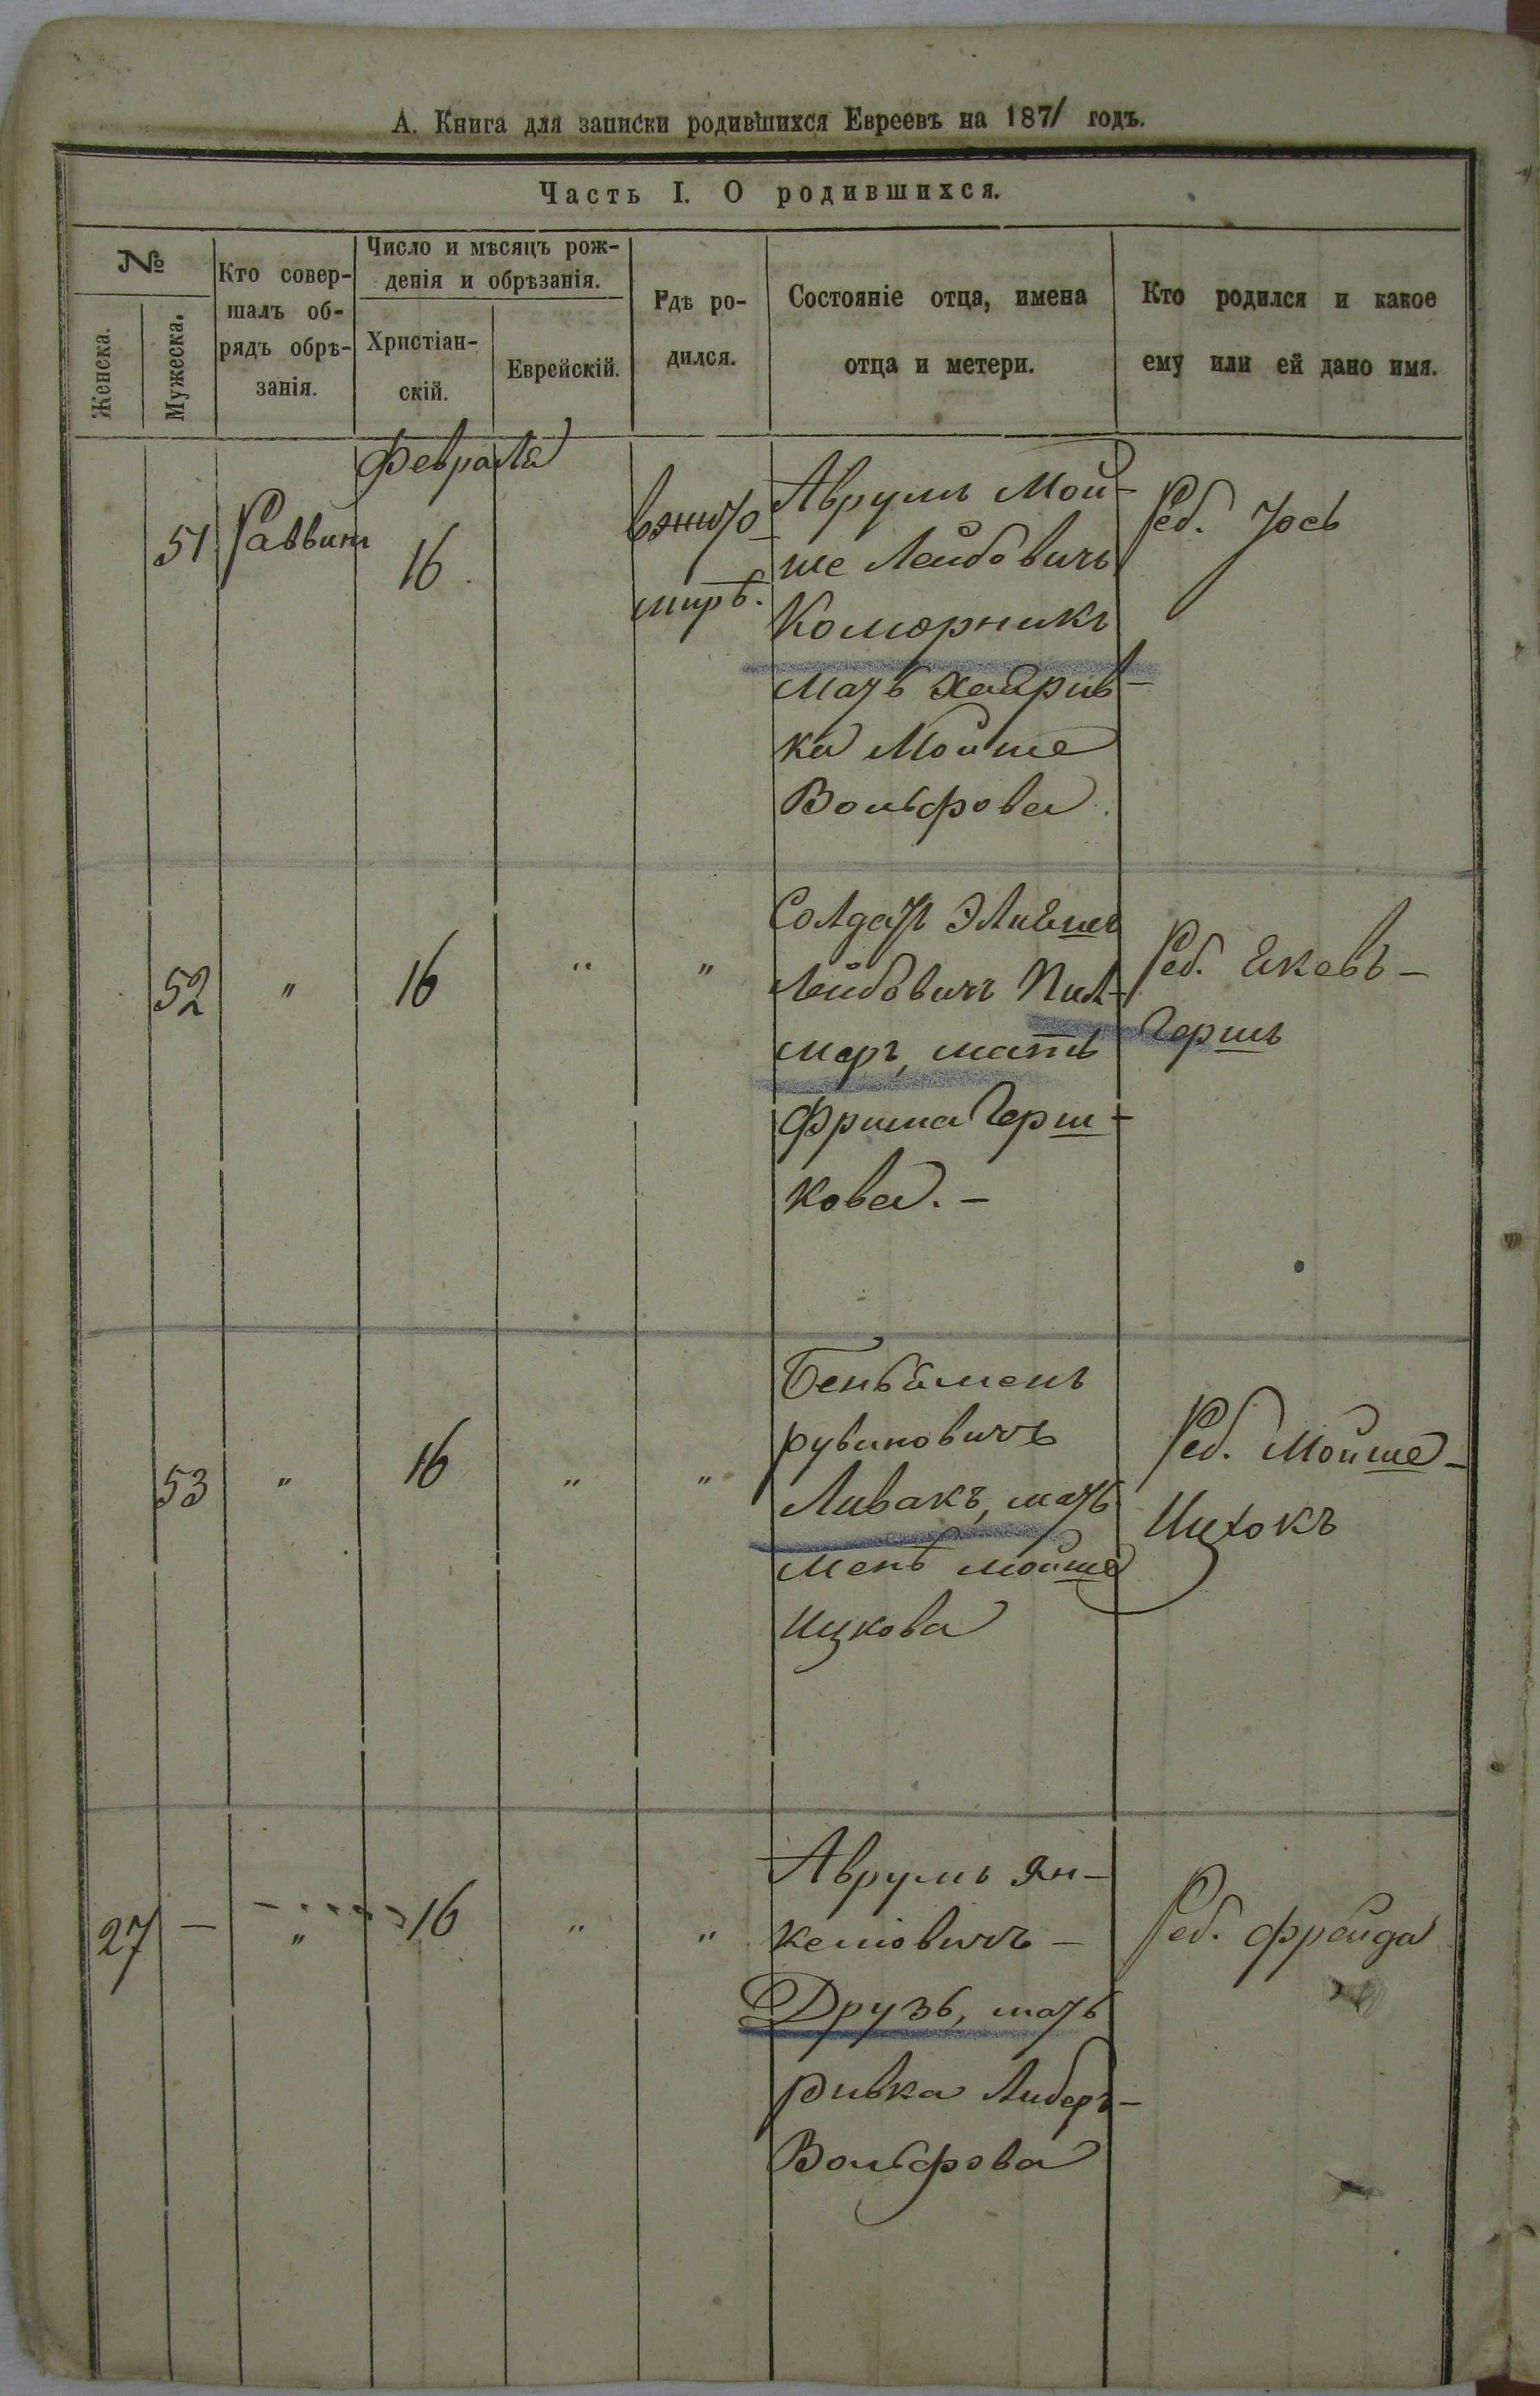 А. Книга для записки родившихся Евреевъ на 1871 годъ.
Часть I. О родившихся.
№
Женска.
Мужеска.
Кто совер-
шалъ об-
рядъ обрѣ-
занія.
Число и мѣсяцъ рож-
денія и обрѣзанія.
Христіан-
скій.
Еврейскій.
Гдѣ ро-
дился.
Состояніе отца, имена
отца и метери.
Кто родился и какое
ему или ей дано имя.
Февраля
51
Раввинъ
16
вжито
мирѣ.
Аврумъ Мой-
ше Лейбовичъ
Коморникъ
мать Хаярив-
ка Мойше
Вольфова.
Реб. Іось
52
"
16
"
"
Солдатъ
Лейбовичъ Пил-
меръ, мать
Фрима Герш-
кова. -
Реб. Екевъ-
Гершъ
53
"
16
"
"
Беньяменъ
рувиновичъ
Ливакъ, мать
мойше
Ицкова
Реб. Мойше-
Ицхокъ
27
—
"
16
"
"
Аврумъ Ян-
келіовичъ -
Друзь, мать
Ривка Либеръ-
Вольфова
Реб. фрейда